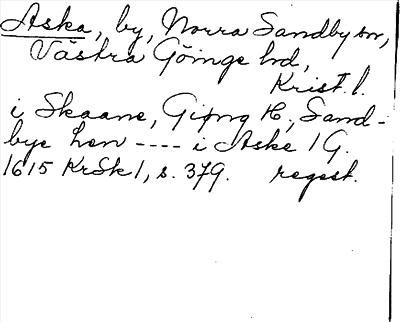 Aska, by, Norra Sandby sn,
Västra Göinge hd,
Krist. l.
i Skaane, Giøng H, Sand-
bye hen ---- i Aske 1 G.
1615 KrSk 1, s. 379. regest.